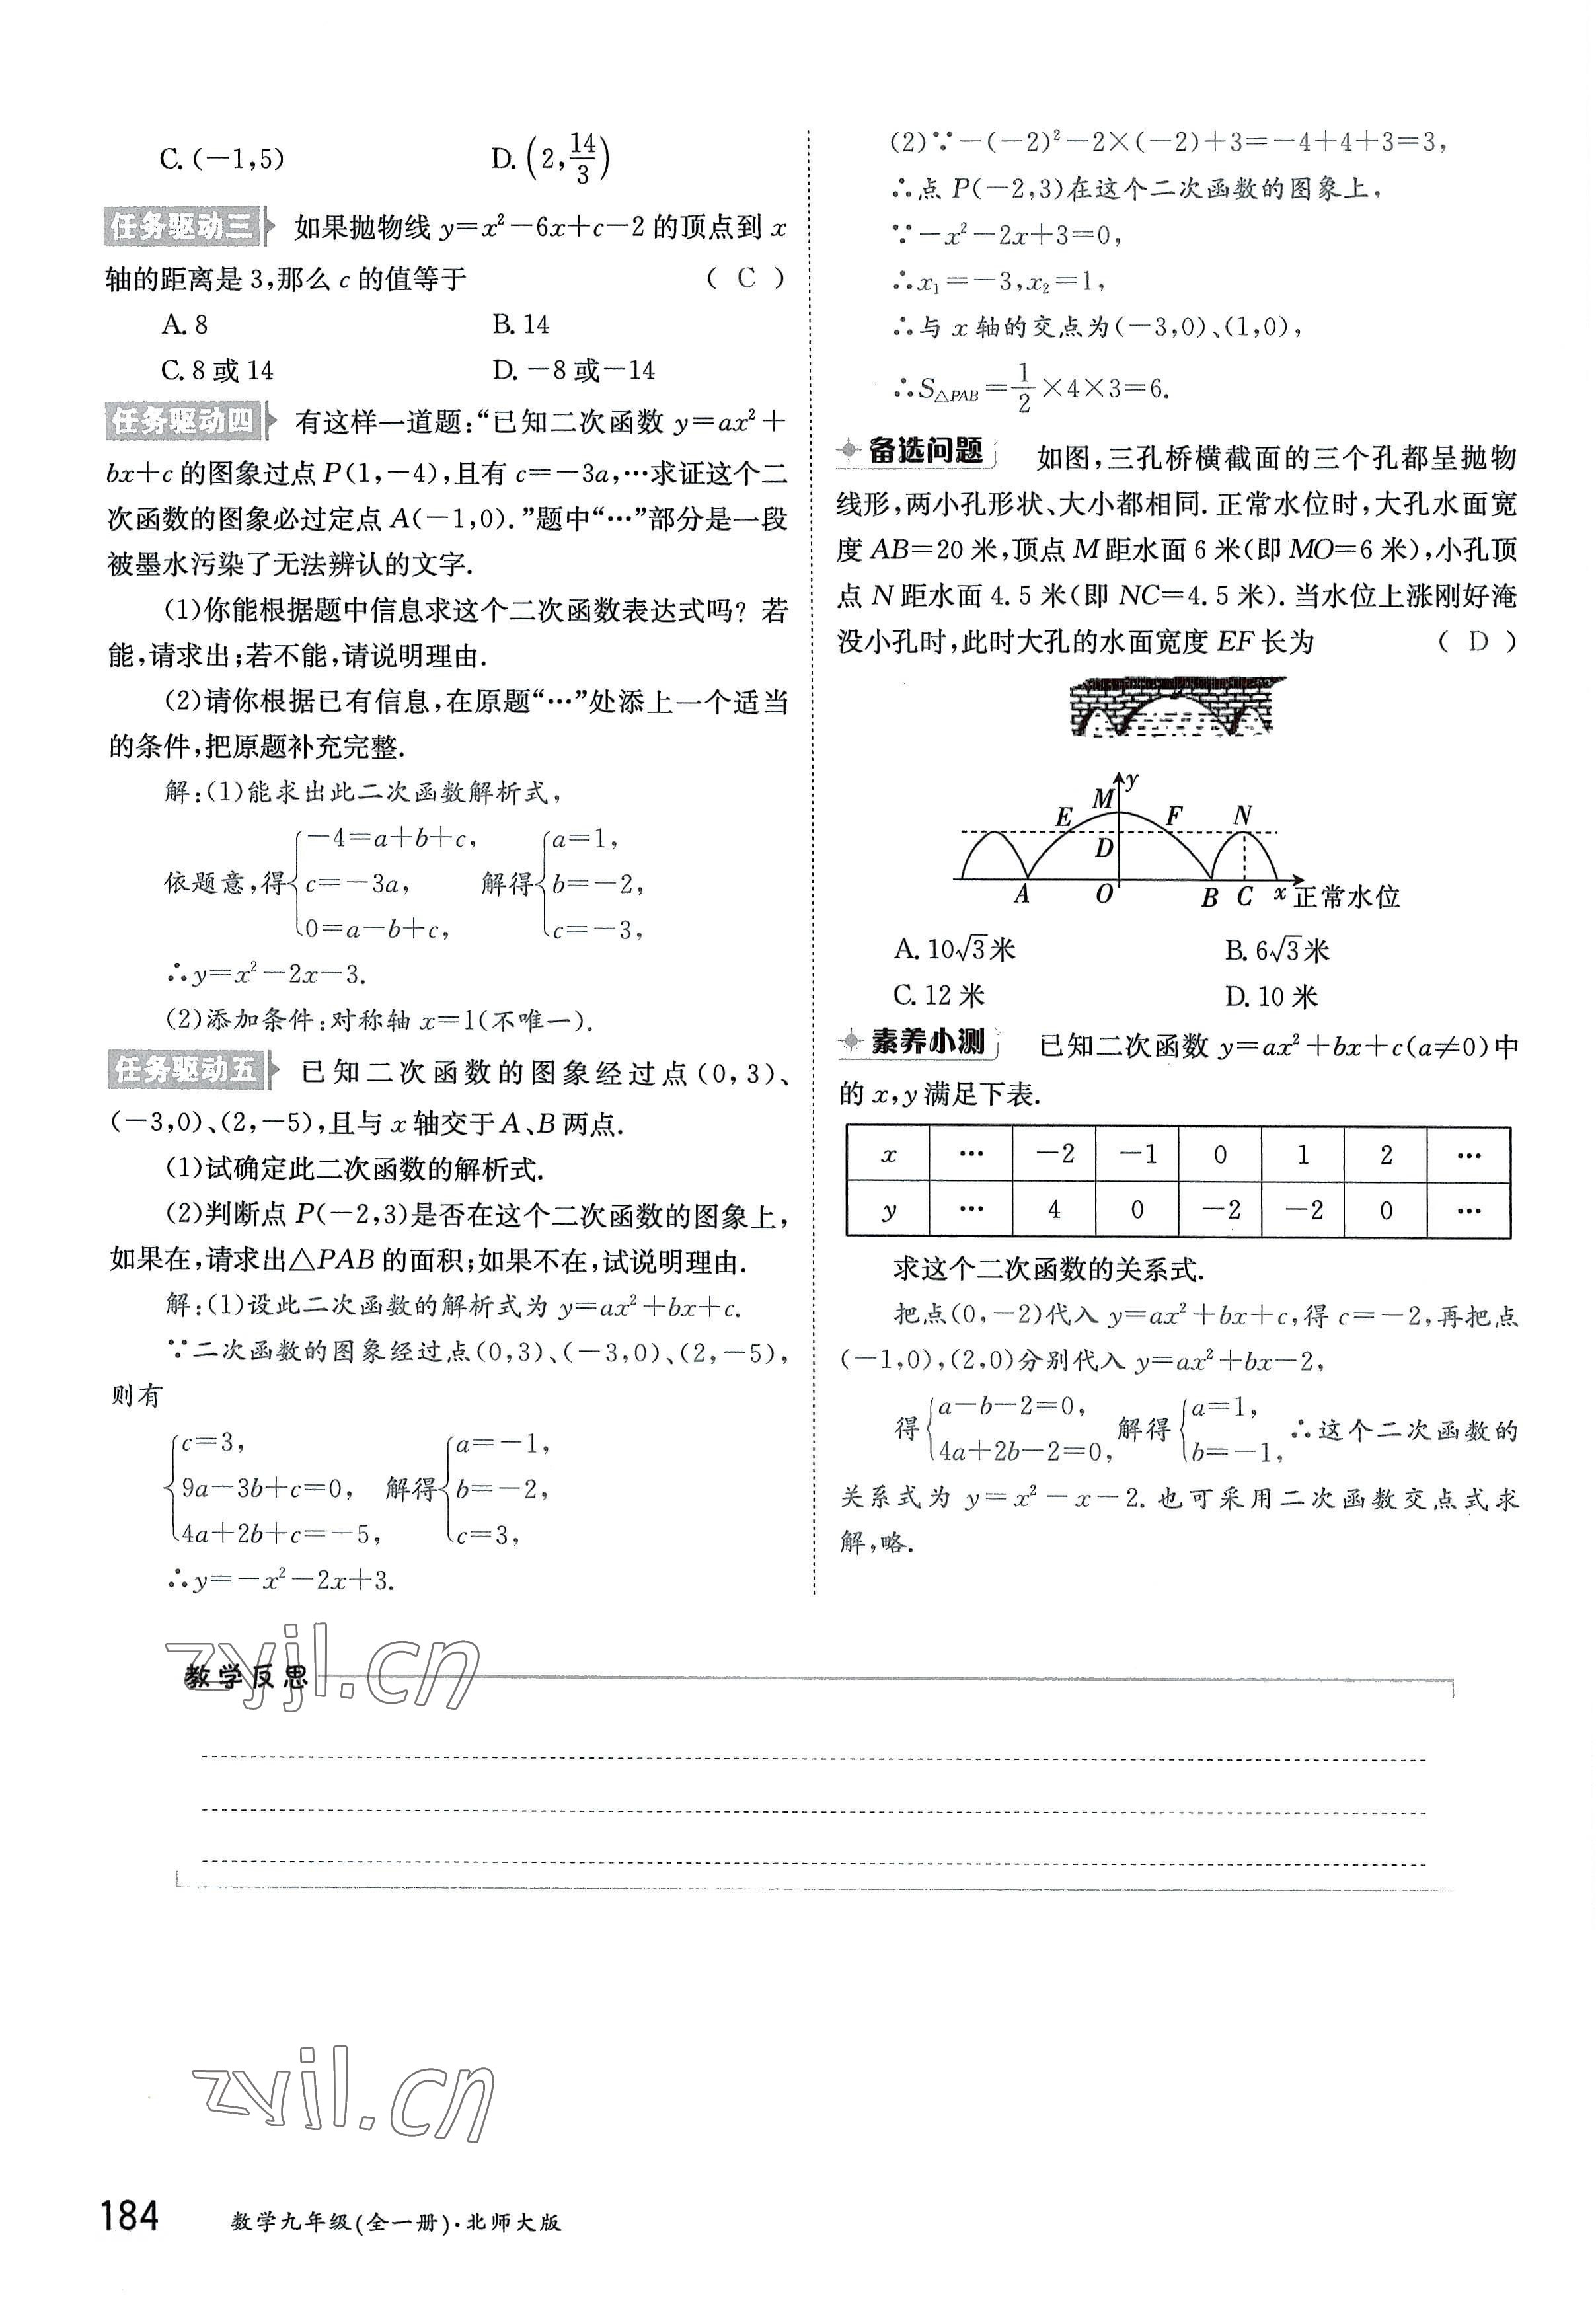 C. (－1,5)　D. (2, 14/3)
任务驱动三　如果抛物线 y=x²－6x+c－2 的顶点到 x
轴的距离是 3,那么 c 的值等于　( C )
A. 8　B. 14
C. 8 或 14　D. －8 或－14
任务驱动四　有这样一道题:“已知二次函数 y=ax²+
bx+c 的图象过点 P(1,－4),且有 c=－3a,…求证这个二
次函数的图象必过定点 A(－1,0).”题中“…”部分是一段
被墨水污染了无法辨认的文字.
(1)你能根据题中信息求这个二次函数表达式吗? 若
能,请求出;若不能,请说明理由.
(2)请你根据已有信息,在原题“…”处添上一个适当
的条件,把原题补充完整.
解:(1)能求出此二次函数解析式,
依题意,得{－4=a+b+c, c=－3a, 0=a－b+c, 解得{a=1, b=－2, c=－3,
∴y=x²－2x－3.
(2)添加条件:对称轴 x=1(不唯一).
任务驱动五　已知二次函数的图象经过点(0,3)、
(－3,0)、(2,－5),且与 x 轴交于 A、B 两点.
(1)试确定此二次函数的解析式.
(2)判断点 P(－2,3)是否在这个二次函数的图象上,
如果在,请求出△PAB 的面积;如果不在,试说明理由.
解:(1)设此二次函数的解析式为 y=ax²+bx+c.
∵二次函数的图象经过点(0,3)、(－3,0)、(2,－5),
则有
{c=3, 9a－3b+c=0, 4a+2b+c=－5, 解得{a=－1, b=－2, c=3,
∴y=－x²－2x+3.
(2)∵－(－2)²－2×(－2)+3=－4+4+3=3,
∴点 P(－2,3)在这个二次函数的图象上,
∵－x²－2x+3=0,
∴x₁=－3,x₂=1,
∴与 x 轴的交点为(－3,0)、(1,0),
∴S△PAB=1/2×4×3=6.
备选问题　如图,三孔桥横截面的三个孔都呈抛物
线形,两小孔形状、大小都相同. 正常水位时,大孔水面宽
度 AB=20 米,顶点 M 距水面 6 米(即 MO=6 米),小孔顶
点 N 距水面 4.5 米(即 NC=4.5 米). 当水位上涨刚好淹
没小孔时,此时大孔的水面宽度 EF 长为　( D )
y
M
E　F　N
D
A　O　B　C　x 正常水位
A. 10√3米　B. 6√3米
C. 12 米　D. 10 米
素养小测　已知二次函数 y=ax²+bx+c(a≠0)中
的 x,y 满足下表.
x　…　－2　－1　0　1　2　…
y　…　4　0　－2　－2　0　…
求这个二次函数的关系式.
把点(0,－2)代入 y=ax²+bx+c,得 c=－2,再把点
(－1,0),(2,0)分别代入 y=ax²+bx－2,
得{a－b－2=0, 4a+2b－2=0, 解得{a=1, b=－1, ∴这个二次函数的
关系式为 y=x²－x－2. 也可采用二次函数交点式求
解,略.
zyjl.cn
教学反思
zyjl.cn
184　数学九年级(全一册)·北师大版